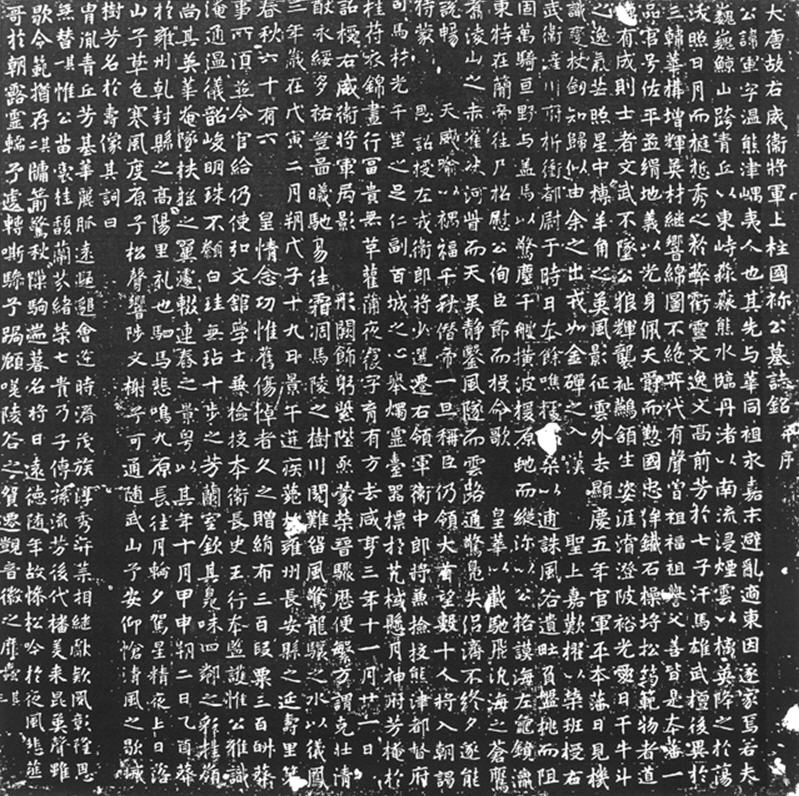 大唐故右威衛將軍上柱國祢公墓誌銘并序
公諱軍字溫熊津嵎夷人也其先与華同祖永嘉末避亂適東因遂家焉若夫
巍巍鯨山跨青丘以東峙淼淼熊水臨丹渚以南流浸煙雲以樆英降之於蕩
沃照日月而榳惁秀之於蔽虧靈文逸文高前芳於七子汗馬雄武擅後異於
三韓華構增輝英材継響綿圖不絶弈代有聲曾祖福祖譽父善皆是本藩一
品官号佐平並緝地義以光身佩天爵而懃國忠侔鐵石操埒松筠範物者道
德有成則士者文武不墜公狼輝襲祉鷰頷生姿涯濬澄陂裕光愛日干牛斗
之逸氣芒照星中搏羊角之英風影征雲外去顯慶五年官軍平本藩日見機
識變杖劒知歸似由余之出戎如金磾之入漢 聖上嘉歎擢以榮班授右
武衛滻川府折衝都尉于時日本餘噍據扶桑以逋誅風谷遺甿負盤桃而阻
固萬騎亘野与盖馬以驚塵千艘横波援原虵而縱沵以公格謨海左龜鏡瀛
東特在簡帝往尸招慰公侚臣節而投命歌 皇華以載馳飛汎海之蒼鷹
翥淩山之赤雀決河眥而天吳静鑿風隧而雲路通驚鳧失侶濟不終夕遂能
説暢 天威喩以禍福千秋僭帝一旦稱臣仍領大首望數十人將入朝謁
特蒙 恩詔授左戎衛郎將少選遷右領軍衛中郎將兼檢校熊津都督府
司馬材光千里之足仁副百城之心舉燭靈臺器標於芃棫懸月神府芳掩於
桂符衣錦晝行富貴無革雚蒲夜寢字育有方去咸亨三年十一月廿一日
詔授右威衛將軍局影 彤闕飾躬紫陛亟蒙榮晉驟歷便繁方謂克壯清
猷永綏多祐豈啚曦馳易往霜凋馬陵之樹川閲難留風驚龍驤之水以儀鳳
三年歲在戊寅二月朔戊子十九日景午遘疾薨於雍州長安縣之延壽里第
春秋六十有六 皇情念功惟舊傷悼者久之贈絹布三百段粟三百䚂葬
事所湏並令官給仍使弘文館學士兼檢校本衛長史王行本監護惟公雅識
淹通溫儀韶峻明珠不纇白珪無玷十步之芳蘭室欽其臭味四鄰之彩桂嶺
尚其英華奄墜扶搖之翼遽輟連舂之景粤以其年十月甲申朔二日乙酉葬
於雍州乾封縣之高陽里礼也駟馬悲鳴九原長往月輪夕駕星精夜上日落
山兮草色寒風度原兮松聲響陟文榭兮可通随武山兮安仰愴清風之歇滅
樹芳名於壽像其詞曰
冑胤青丘芳基華麗脈遠遐邈會逢時濟茂族淳秀弈葉相継獻款夙彰隆恩
無替其一惟公苗裔桂馥蘭芬緒榮七貴乃子傳孫流芳後代播美來昆英聲雖
歇令範猶存其二牖箭驚秋隙駒遄暮名將日遠德随年故慘松吟於夜風悲薤
哥於朝露靈輀兮遽轉嘶驂兮跼顧嗟陵谷之貿遷覬音徽之靡蠹其三